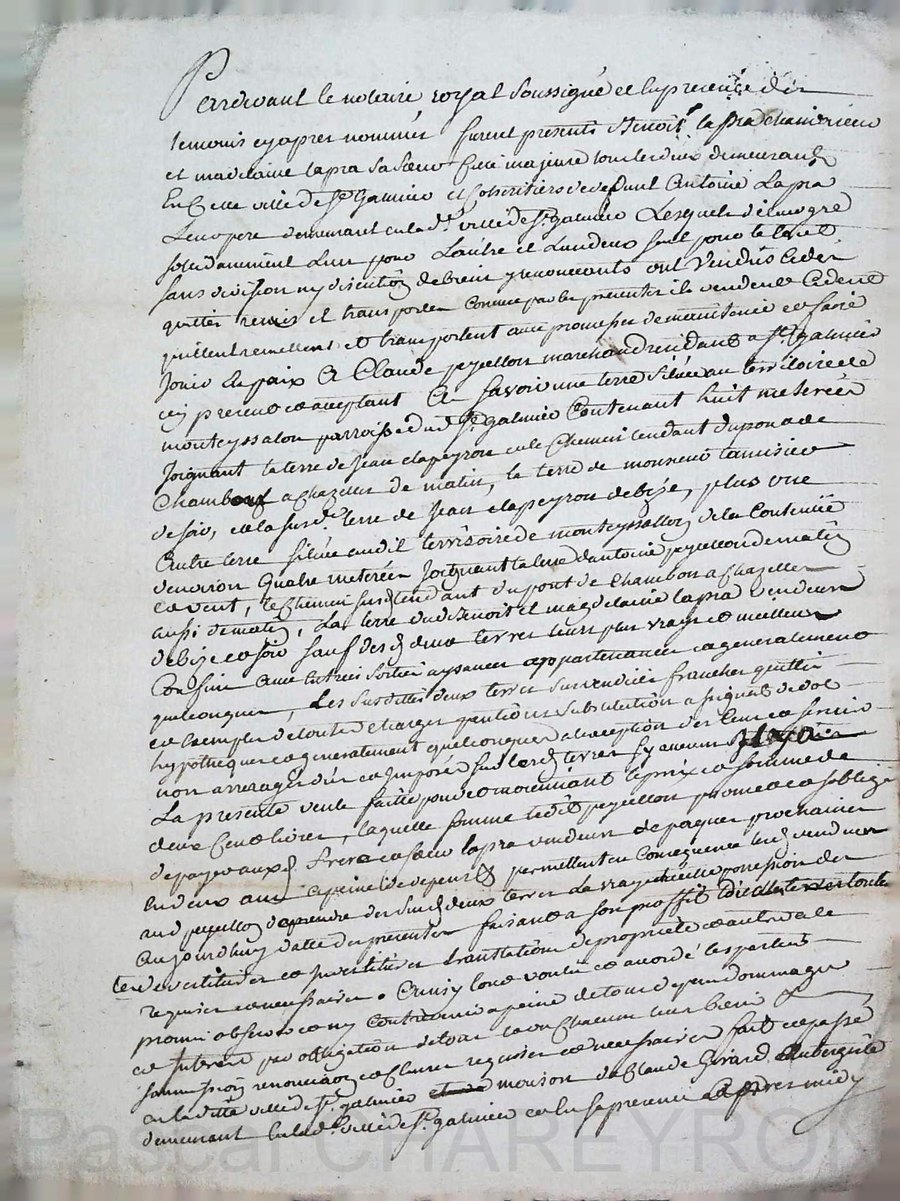 Pardevant le notaire royal soussigné et en presence des
temoins cy apres nommés furent presents Benoit Lapra chanvrieur
et madelaine lapra sa soeur fille majeure tous les deux demeurants
En Cette ville de St Galmier et Cohéritiers de defunt Antoine Lapra
Leur pere demeurant en lad. ville de St galmier Lesquels de leur gré
solidairement L'un pour L'autre et L'un deux seul pour le tout
sans division ny discution de biens y renoncants ont Vendus cedés
quittés remis et transportés Comme par les presentes ils vendent Cedent
quittent remettent et transportent avec promesse de maintenir et faire
Jouir en paix a Claude peyellon marchand residant a St Galmier
icy present et acceptant a Savoir une terre située au territoire de
monteyssalon parroisse dud. St galmier Contenant huit meterées
Joignant la terre de Jean clapeyron et le Chemin tendant du pont de
Chambon a Chazelles de matin, la terre de monsieur tamisier
de soir, et la susd. terre de Jean clapeyron de bize, plus une
Autre terre située audit territoire de monteyssallon de la Contenue
denviron quatre meterées Joignant la terre d'antoine peyellon de matin
et vent, le Chemin susd. tendant du pont de Chambon a Chazelles
aussi de matin, La terre dud. Benoit et magdelaine lapra vendeurs
de bize et soir sauf desd. deux terres leurs plus vrays et meilleurs
Confins avec entrées sorties aysances appartenances et generalement
quelconques, Les susdittes deux terres survendües franches quittes
et exemptes de toutes charges pentions substitutions
hypotheques et generalement quelconques a l'exception des Cens et servis
non arreragés dus et imposés sur lesd. terres sy aucuns
La presente vente faitte pour et moiennant le prix et somme de
deux Cent livres, laquelle somme ledit peyellon promet et s'oblige
de payer auxd. frere et soeur lapra vendeurs
en deux ans a peine de depens permettent en Consequence lesd. vendeurs
aud. peyellon de prendre desd. deux terres la vraye possession des
aujourdhuy datte des presentes faisant a son proffit
devestitures et investitures translation de propriété et autres
requises et necessaires. Ainsy loué voulu et accordé les parties
promis observer et ny contrevenir a peine de tous depens dommages
et Interets par obligation de tous Chacuns leurs biens
soumission renonciation et clauses requises et necessaires fait et passé
en laditte ville de St galmier maison de Claude Girard Aubergiste
demeurant en lad. ville de St galmier et en sa presence apres midy
Pascal CHAREYRON